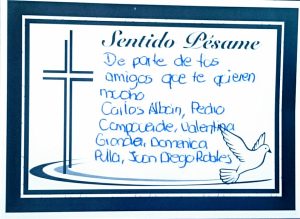 Sentido Pésame
De parte de tus
amigos que te quieren
mucho
Carlos Albán, Pedro
Campoverde, Valentina
Granda, Domenica
Pulla, Juan Diego Robles